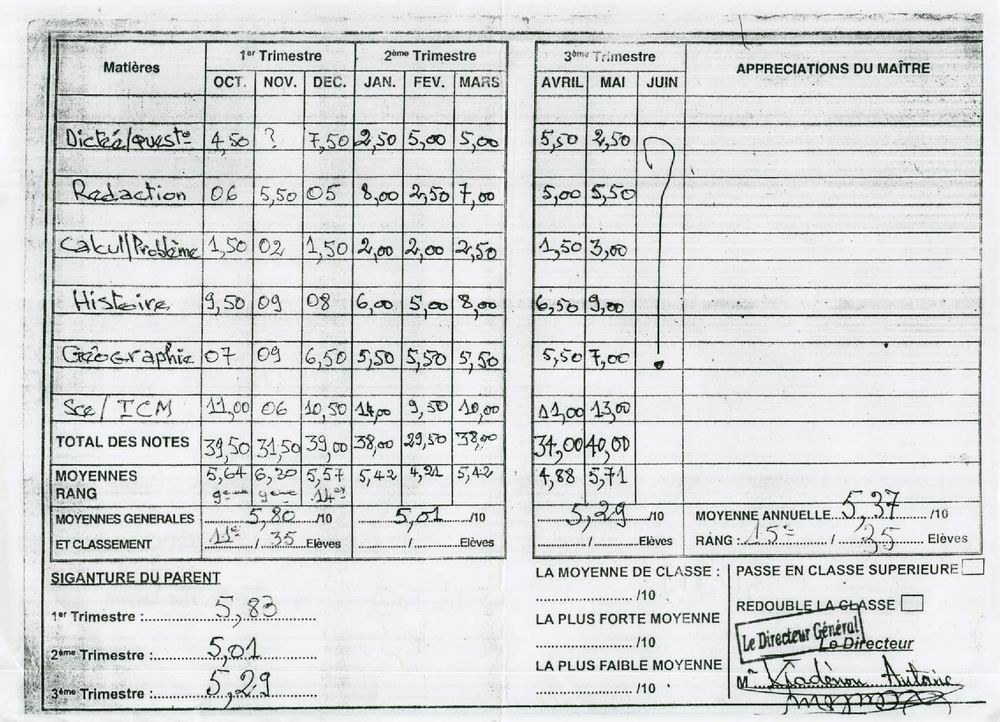 Matières 1er Trimestre 2ème Trimestre 3ème Trimestre APPRECIATIONS DU MAÎTRE
OCT. NOV. DEC. JAN. FEV. MARS AVRIL MAI JUIN
Dictée/Questo 4,50 ? 7,50 2,50 5,00 5,00 5,50 2,50
Redaction 06 5,50 05 8,00 2,50 7,00 5,00 5,50
Calcul/Problème 1,50 02 1,50 2,00 2,00 2,50 1,50 3,00
Histoire 9,50 09 08 6,00 5,00 8,00 6,50 9,00
Géographie 07 09 6,50 5,50 5,50 5,50 5,50 7,00
Sce/ICM 11,00 06 10,50 14,00 9,50 10,00 11,00 13,00
TOTAL DES NOTES 39,50 31,50 39,00 38,00 29,50 38,00 34,00 40,00
MOYENNES 5,64 6,30 5,57 5,42 4,21 5,42 4,88 5,71
RANG 9ème 9ème 14
MOYENNES GENERALES 5,80 /10 5,01 /10 5,29 /10 MOYENNE ANNUELLE 5,37 /10
ET CLASSEMENT 11e / 35 Elèves / Elèves / Elèves RANG : 15e / 35 Elèves
SIGANTURE DU PARENT
1er Trimestre : 5,83
2ème Trimestre : 5,01
3ème Trimestre : 5,29
LA MOYENNE DE CLASSE :
/10
LA PLUS FORTE MOYENNE
/10
LA PLUS FAIBLE MOYENNE
/10
PASSE EN CLASSE SUPERIEURE
REDOUBLE LA CLASSE
Le Directeur Général
Le Directeur
M Antoine